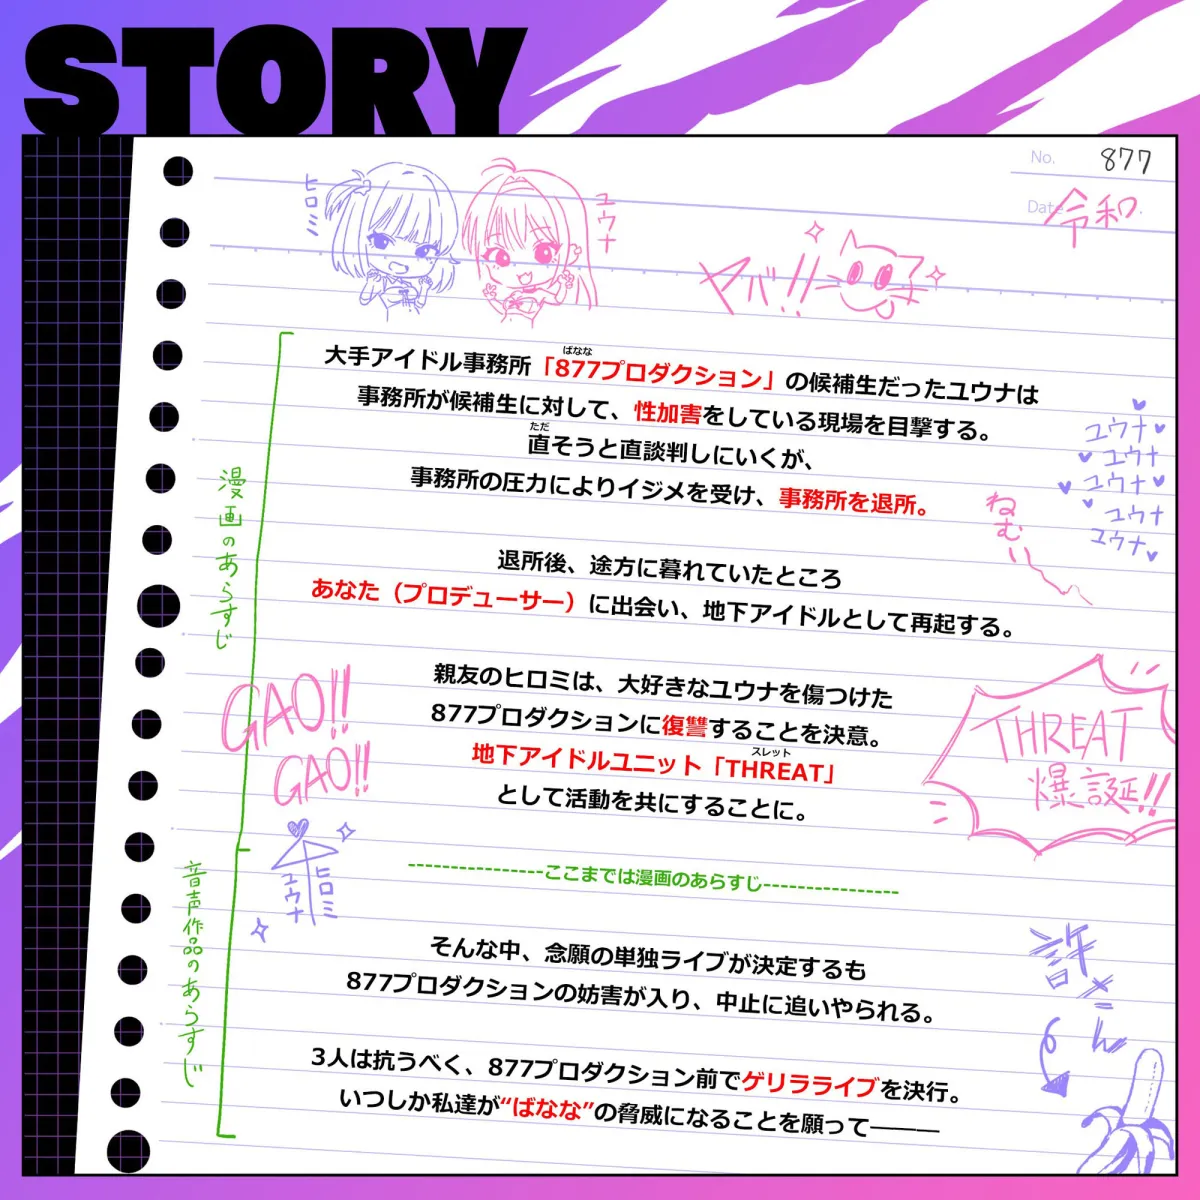 STORY
No. 877
Date 令和
ヒロミ
ユウナ
ヤバ!!
大手アイドル事務所「877プロダクション」の候補生だったユウナは
ばなな
事務所が候補生に対して、性加害をしている現場を目撃する。
直そうと直談判しにいくが、
ただ
事務所の圧力によりイジメを受け、事務所を退所。
ユウナ
ユウナ
ユウナ
ユウナ
ユウナ
ねむい
漫画のあらすじ
退所後、途方に暮れていたところ
あなた（プロデューサー）に出会い、地下アイドルとして再起する。
親友のヒロミは、大好きなユウナを傷つけた
877プロダクションに復讐することを決意。
地下アイドルユニット「THREAT」
スレット
として活動を共にすることに。
GAO!!
GAO!!
THREAT
爆誕!!
ヒロミ
ユウナ
----------------ここまでは漫画のあらすじ----------------
音声作品のあらすじ
そんな中、念願の単独ライブが決定するも
877プロダクションの妨害が入り、中止に追いやられる。
3人は抗うべく、877プロダクション前でゲリラライブを決行。
いつしか私達が“ばなな”の脅威になることを願って―――
許さん